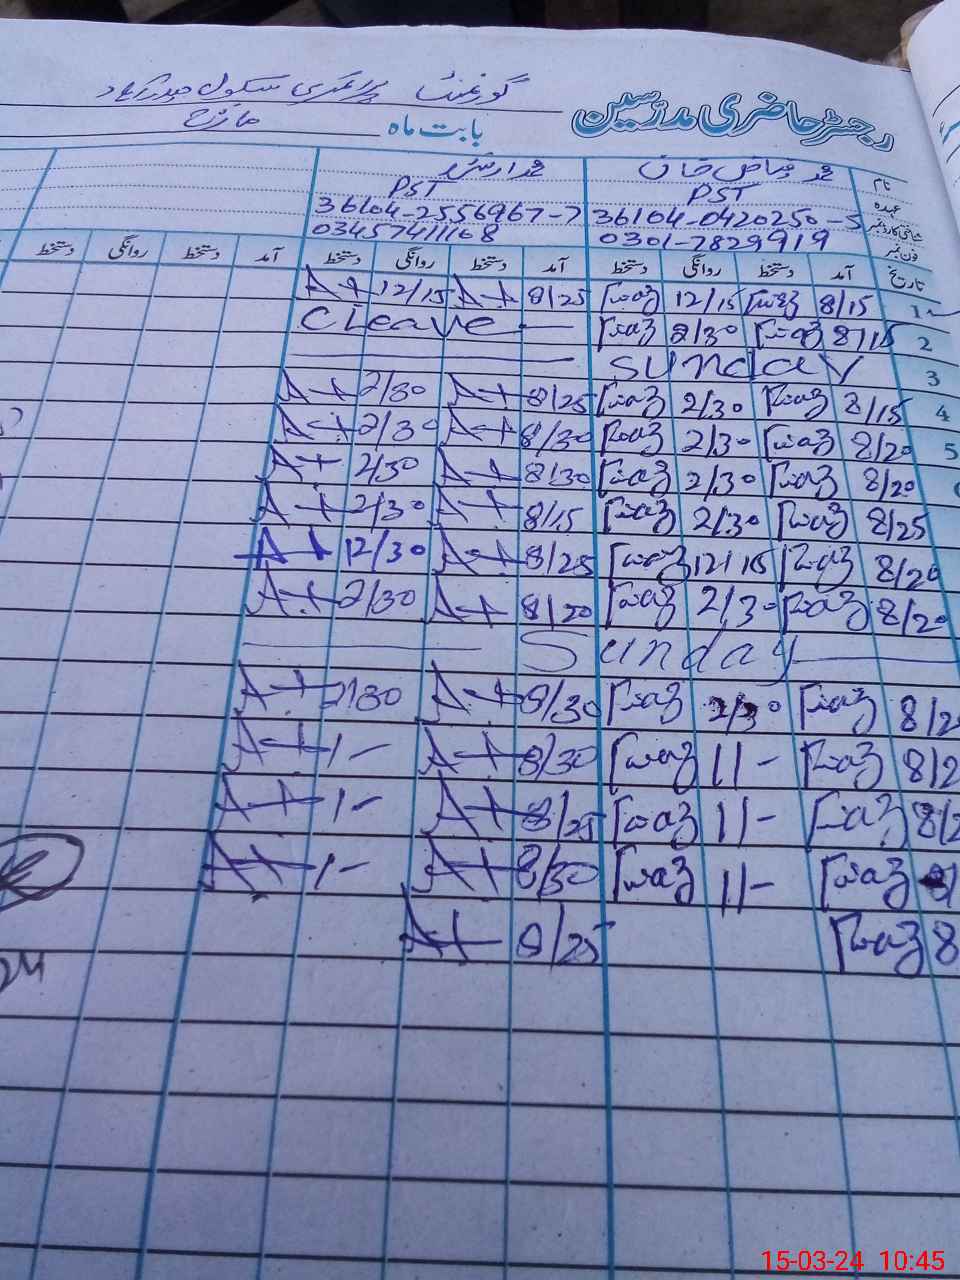 گورنمنٹ پرائمری سکول حیدرآباد
رجسٹر حاضری مدرسین
بابت ماہ مارچ
نام محمد فیاض خان محمد ارشد
عہدہ PST PST
شناختی کارڈ نمبر 36104-0420250-5 36104-2556967-7
فون نمبر 0301-7829919 03457411168
تاریخ آمد دستخط روانگی دستخط آمد دستخط روانگی دستخط آمد دستخط روانگی دستخط
1 8/15 Fiaz 12/15 Fiaz 8/25 A+ 12/15 A+
2 8/15 Fiaz 2/30 Fiaz — C Leave
3 Sunday
4 8/15 Fiaz 2/30 Fiaz 8/25 A+ 2/30 A+
5 8/20 Fiaz 2/30 Fiaz 8/30 A+ 2/30 A+
8/20 Fiaz 2/30 Fiaz 8/30 A+ 2/30 A+
8/25 Fiaz 2/30 Fiaz 8/15 A+ 2/30 A+
8/20 Fiaz 12/15 Fiaz 8/25 A+ 12/30 A+
8/20 Fiaz 2/30 Fiaz 8/20 A+ 2/30 A+
Sunday
8/2 Fiaz 2/30 Fiaz 8/30 A+ 2/30 A+
8/2 Fiaz 1/- Fiaz 8/30 A+ 1/- A+
8/2 Fiaz 1/- Fiaz 8/25 A+ 1/- A+
8/ Fiaz 1/- Fiaz 8/30 A+ 1/- A+
8 Fiaz 8/25 A+
15-03-24 10:45